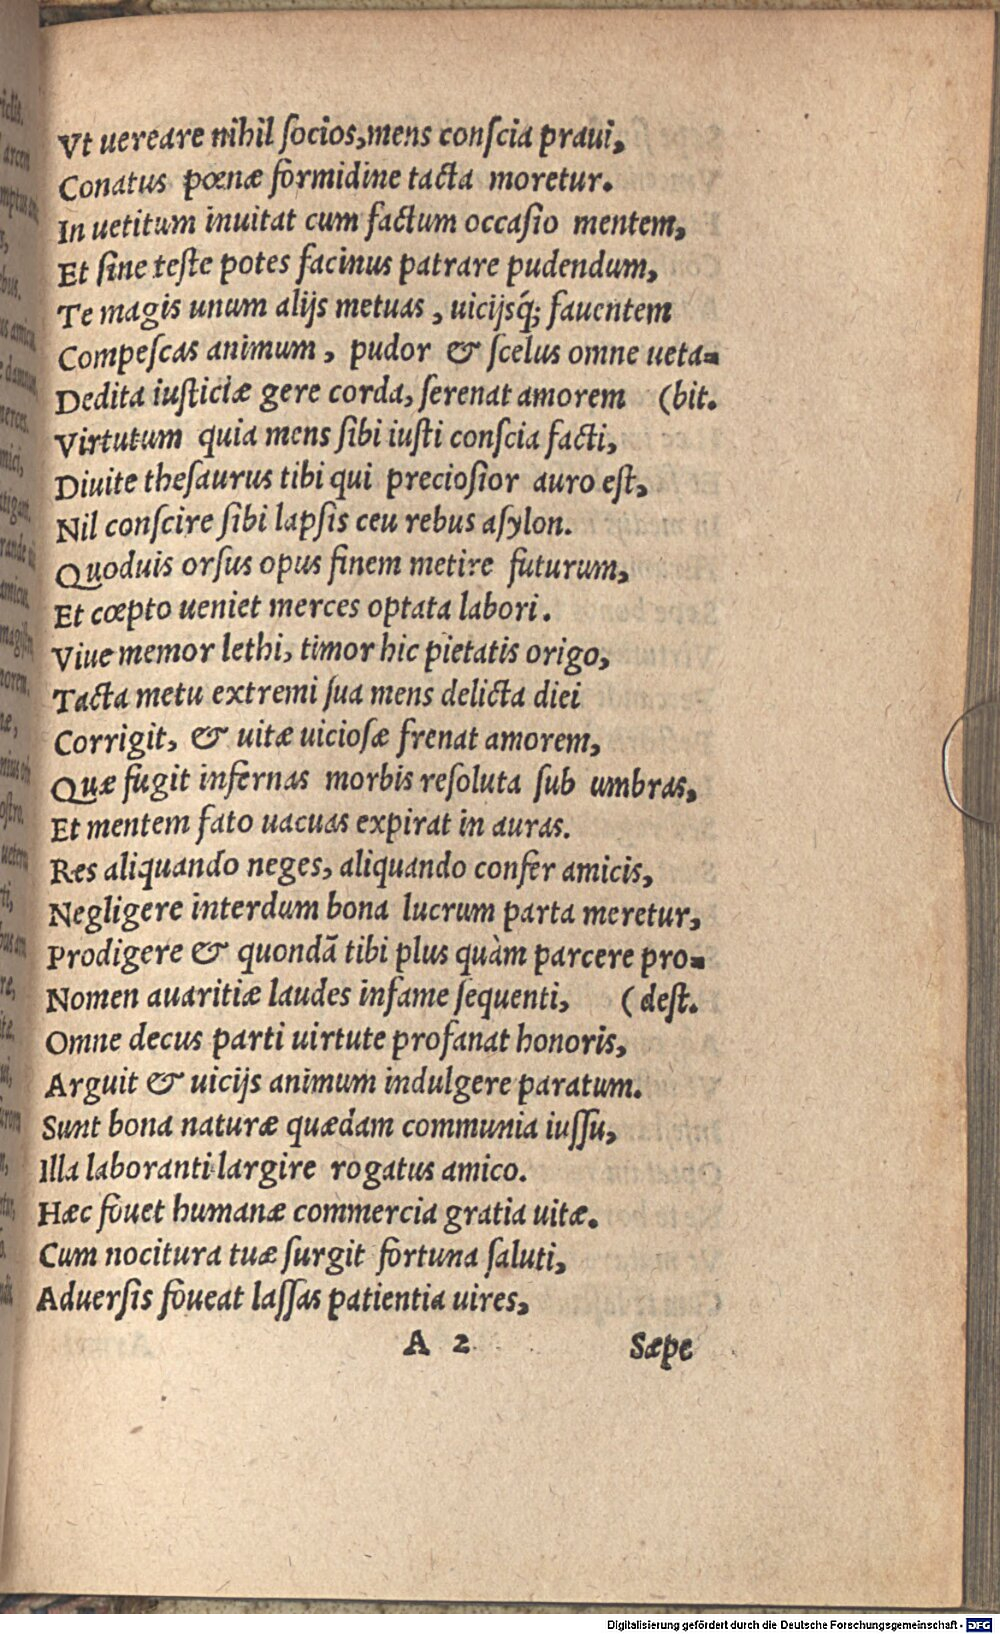 Vt uereare nihil ſocios, mens conſcia praui,
Conatus pœnæ formidine tacta moretur.
In uetitum inuitat cum factum occaſio mentem,
Et ſine teſte potes facinus patrare pudendum,
Te magis unum alijs metuas, uicijsq́; fauentem
Compeſcas animum, pudor & ſcelus omne ueta-
Dedita iuſticiæ gere corda, ſerenat amorem (bit.
Virtutum quia mens ſibi iuſti conſcia facti,
Diuite theſaurus tibi qui precioſior auro eſt,
Nil conſcire ſibi lapſis ceu rebus aſylon.
Quoduis orſus opus finem metire futurum,
Et cœpto ueniet merces optata labori.
Viue memor lethi, timor hic pietatis origo,
Tacta metu extremi ſua mens delicta diei
Corrigit, & uitæ uicioſæ frenat amorem,
Quæ fugit infernas morbis reſoluta ſub umbras,
Et mentem fato uacuas expirat in auras.
Res aliquando neges, aliquando confer amicis,
Negligere interdum bona lucrum parta meretur,
Prodigere & quondã tibi plus quàm parcere pro-
Nomen auaritiæ laudes infame ſequenti, (deſt.
Omne decus parti uirtute profanat honoris,
Arguit & uicijs animum indulgere paratum.
Sunt bona naturæ quædam communia iuſſu,
Illa laboranti largire rogatus amico.
Hæc fouet humanæ commercia gratia uitæ.
Cum nocitura tuæ ſurgit fortuna ſaluti,
Aduerſis foueat laſſas patientia uires,
A 2 Sæpe
Digitalisierung gefördert durch die Deutsche Forschungsgemeinschaft - DFG